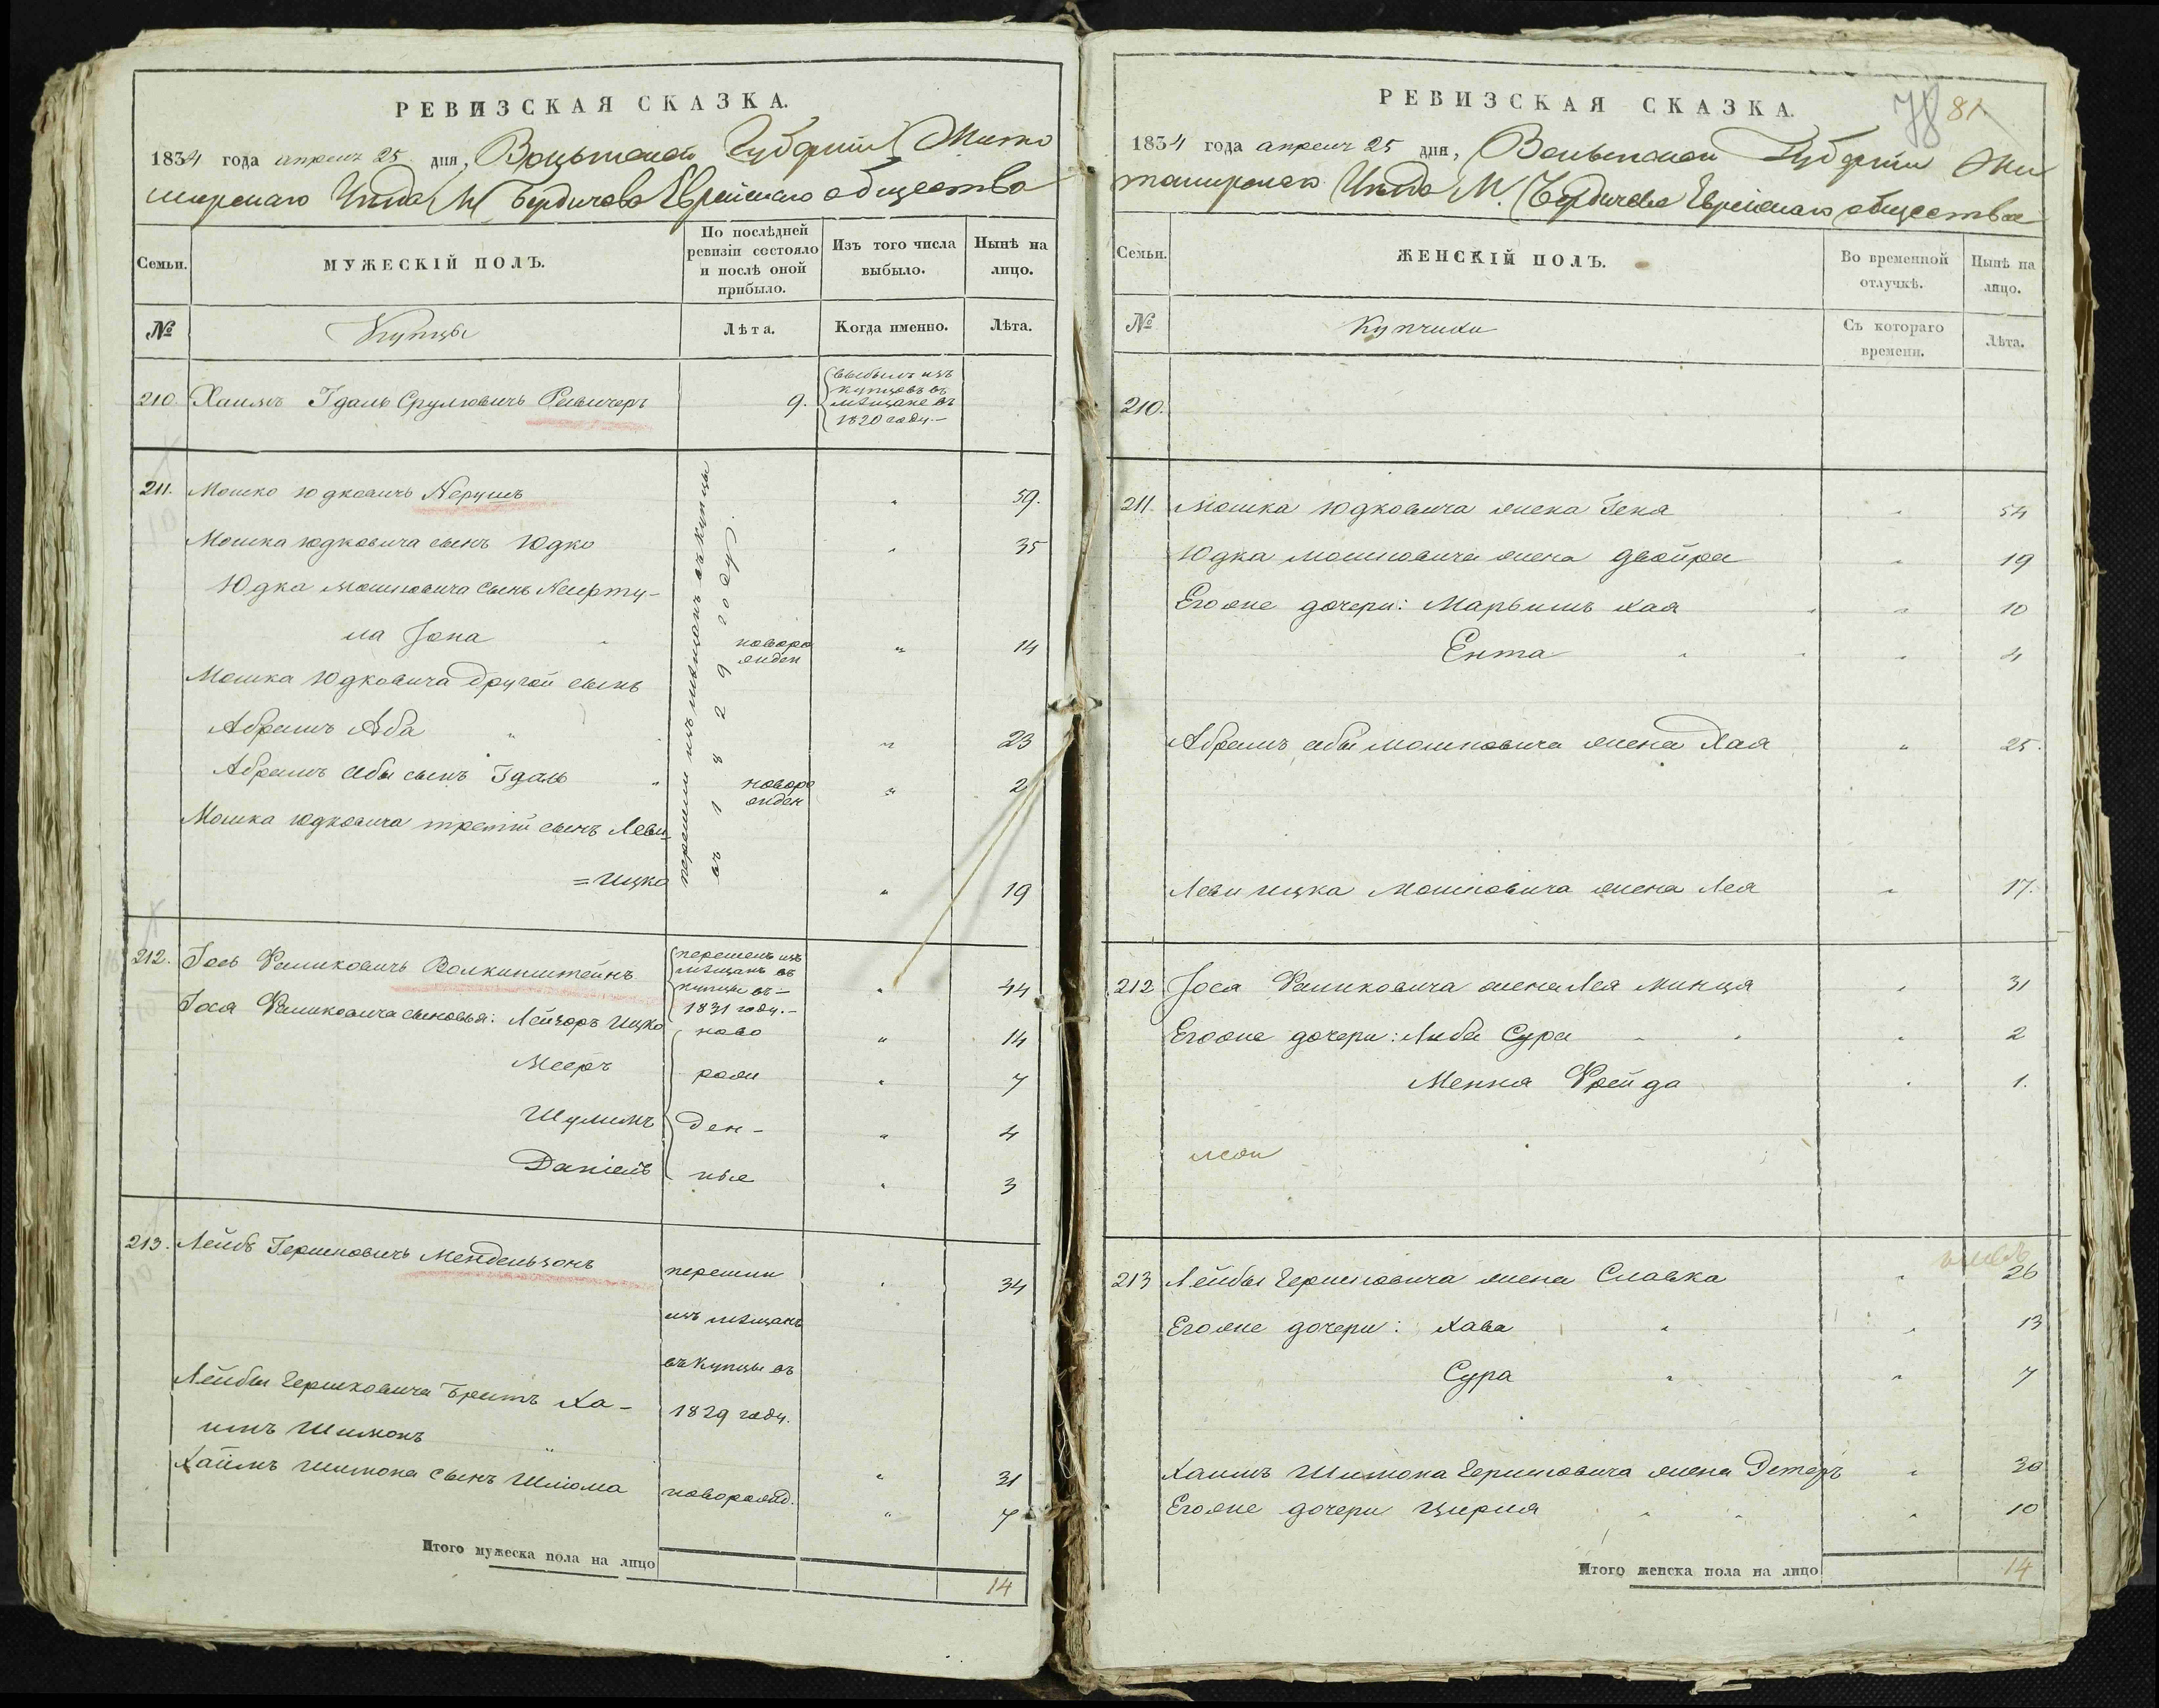 РЕВИЗСКАЯ СКАЗКА.
1834 года апреля 25 дня, Волынской Губернии Жито
мирскаго Уезда М. Бердичева Еврейскаго общества
Семьи.
МУЖЕСКІЙ ПОЛЪ.
По послѣдней
ревизіи состояло
и послѣ оной
прибыло.
Изъ того числа
выбыло.
Нынѣ на
лицо.
№
Купцы
Лѣта.
Когда именно.
Лѣта.
210 Хаимъ Ідаль Срулювичь 9.
выбылъ изъ
купцовъ въ
мѣщане въ
1820 году.-
211. Мошко Юдковичь 59.
перешли изъ мѣщанъ въ купцы
въ 1829 году.
Мошка Юдковича сынъ Юдко 35
Юдка Мошковича сынъ
ла Іона новоро
жден 14
Мошка Юдковича другой сынъ
Абрамъ Аба 23
Абрамъ Абы сынъ Ідаль новоро
жден 2
Мошка Юдковича третій сынъ Леви
=Ицко 19
212. Іось Фаликовичь Волкинштейнъ 44
перешелъ изъ
мѣщанъ въ
купцы въ-
1831 году.-
Іося Фаликовича сыновья: Лейзоръ Ицко ново 14
Мееръ рож 7
Шулимъ ден- 4
Даніель ные 3
213. Лейбъ Гершковичь Мендельзонъ перешли 34
изъ мѣщанъ
въ купцы въ
Лейбы Гершковича братъ Ха- 1829 году.
имъ Шимонъ 31
Хаимъ Шимона сынъ Шліома новорожд. 7
Итого мужеска пола на лицо
14
78 81
РЕВИЗСКАЯ СКАЗКА.
1834 года апреля 25 дня, Волынской Губернии Жи
томирскаго Уезда М. Бердичева Еврейскаго общества
Семьи.
ЖЕНСКІЙ ПОЛЪ.
Во временной
отлучкѣ.
Нынѣ на
лицо.
№
Купчихи
Съ котораго
времени.
Лѣта.
210.
211. Мошка Юдковича жена Геня 54
Юдка Мошковича жена Двойра 19
Егоже дочери: Марьямъ Хая 10
Ента 4
Абрамъ Абы Мошковича жена Хая 25.
Леви Ицка Мошковича жена Лея 17.
212 Іося Фаликовича жена Лея Минця 31
Егоже дочери: Либа Сура 2
Мення Фрейда 1.
213 Лейбы Гершковича жена Славка 26
Егоже дочери: Хава 13
Сура 7
Хаимъ Шимона Гершковича жена 30
Егоже дочери Цирля 10
Итого женска пола на лицо
14